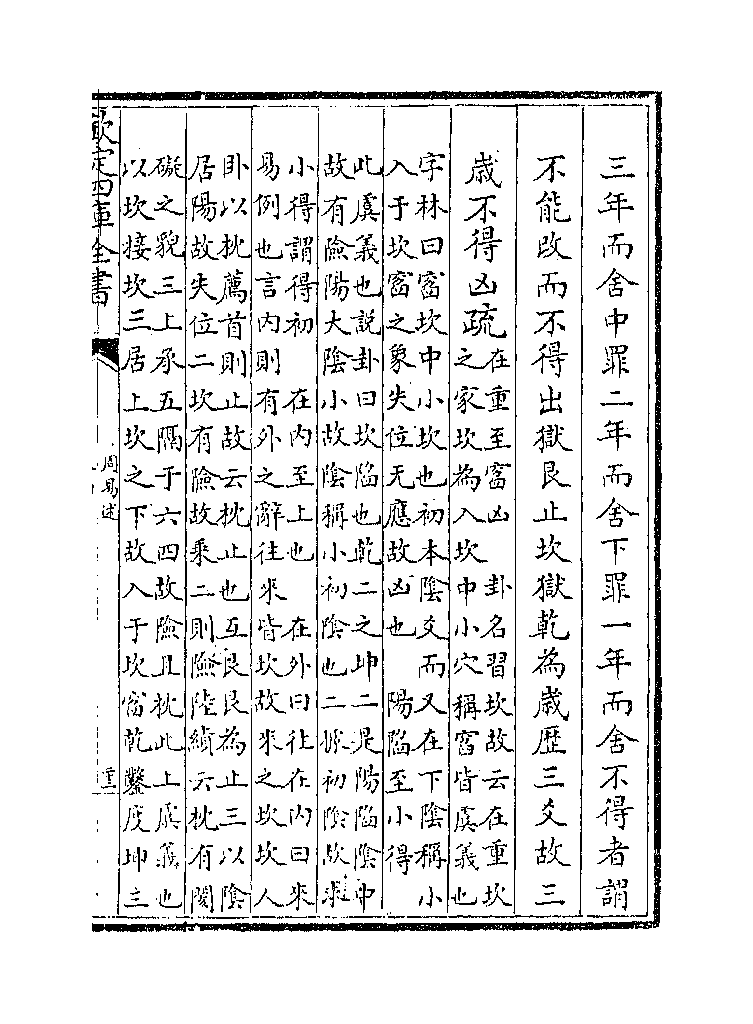 三年而舍中罪二年而舍下罪一年而舍不得者謂
不能改而不得出獄艮止坎獄乾為歲歷三爻故三
歲不得凶疏
在重至窞凶　卦名習坎故云在重坎
之家坎為入坎中小穴稱窞皆虞義也
字林曰窞坎中小坎也初本陰爻而又在下陰稱小
入于坎窞之象失位无應故凶也　陽陷至小得
此虞義也説卦曰坎陷也乾二之坤二是陽陷陰中
故有險陽大陰小故陰稱小初陰也二據初陰故求
小得謂得初　在內至上也　在外曰往在內曰來
易例也言內則有外之辭往來皆坎故來之坎坎人
卧以枕薦首則止故云枕止也互艮艮為止三以陰
居陽故失位二坎有險故乘二則險陸績云枕有閡
礙之貌三上承五隔于六四故險且枕此上虞義也
以坎接坎三居上坎之下故入于坎窞乾鑿度坤主
欽定四庫全書
周易述